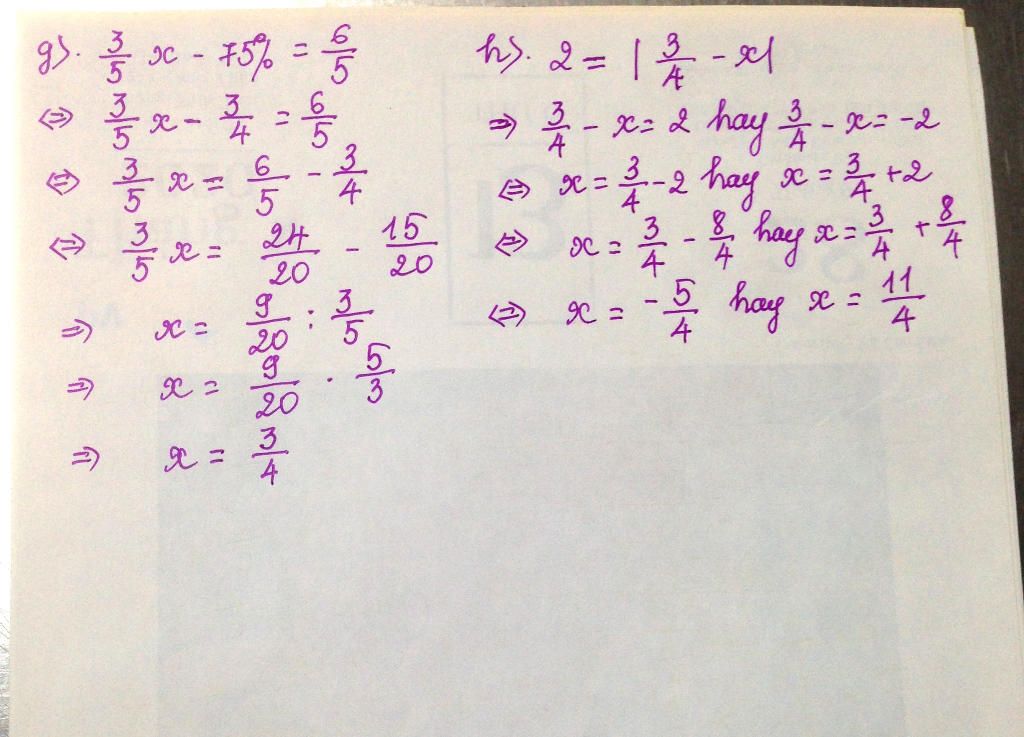 g). 3/5 x - 75% = 6/5
⇔ 3/5 x - 3/4 = 6/5
⇔ 3/5 x = 6/5 - 3/4
⇔ 3/5 x = 24/20 - 15/20
⇒ x = 9/20 : 3/5
⇒ x = 9/20 . 5/3
⇒ x = 3/4
h). 2 = | 3/4 - x |
⇒ 3/4 - x = 2 hay 3/4 - x = -2
⇔ x = 3/4 - 2 hay x = 3/4 + 2
⇔ x = 3/4 - 8/4 hay x = 3/4 + 8/4
⇔ x = -5/4 hay x = 11/4